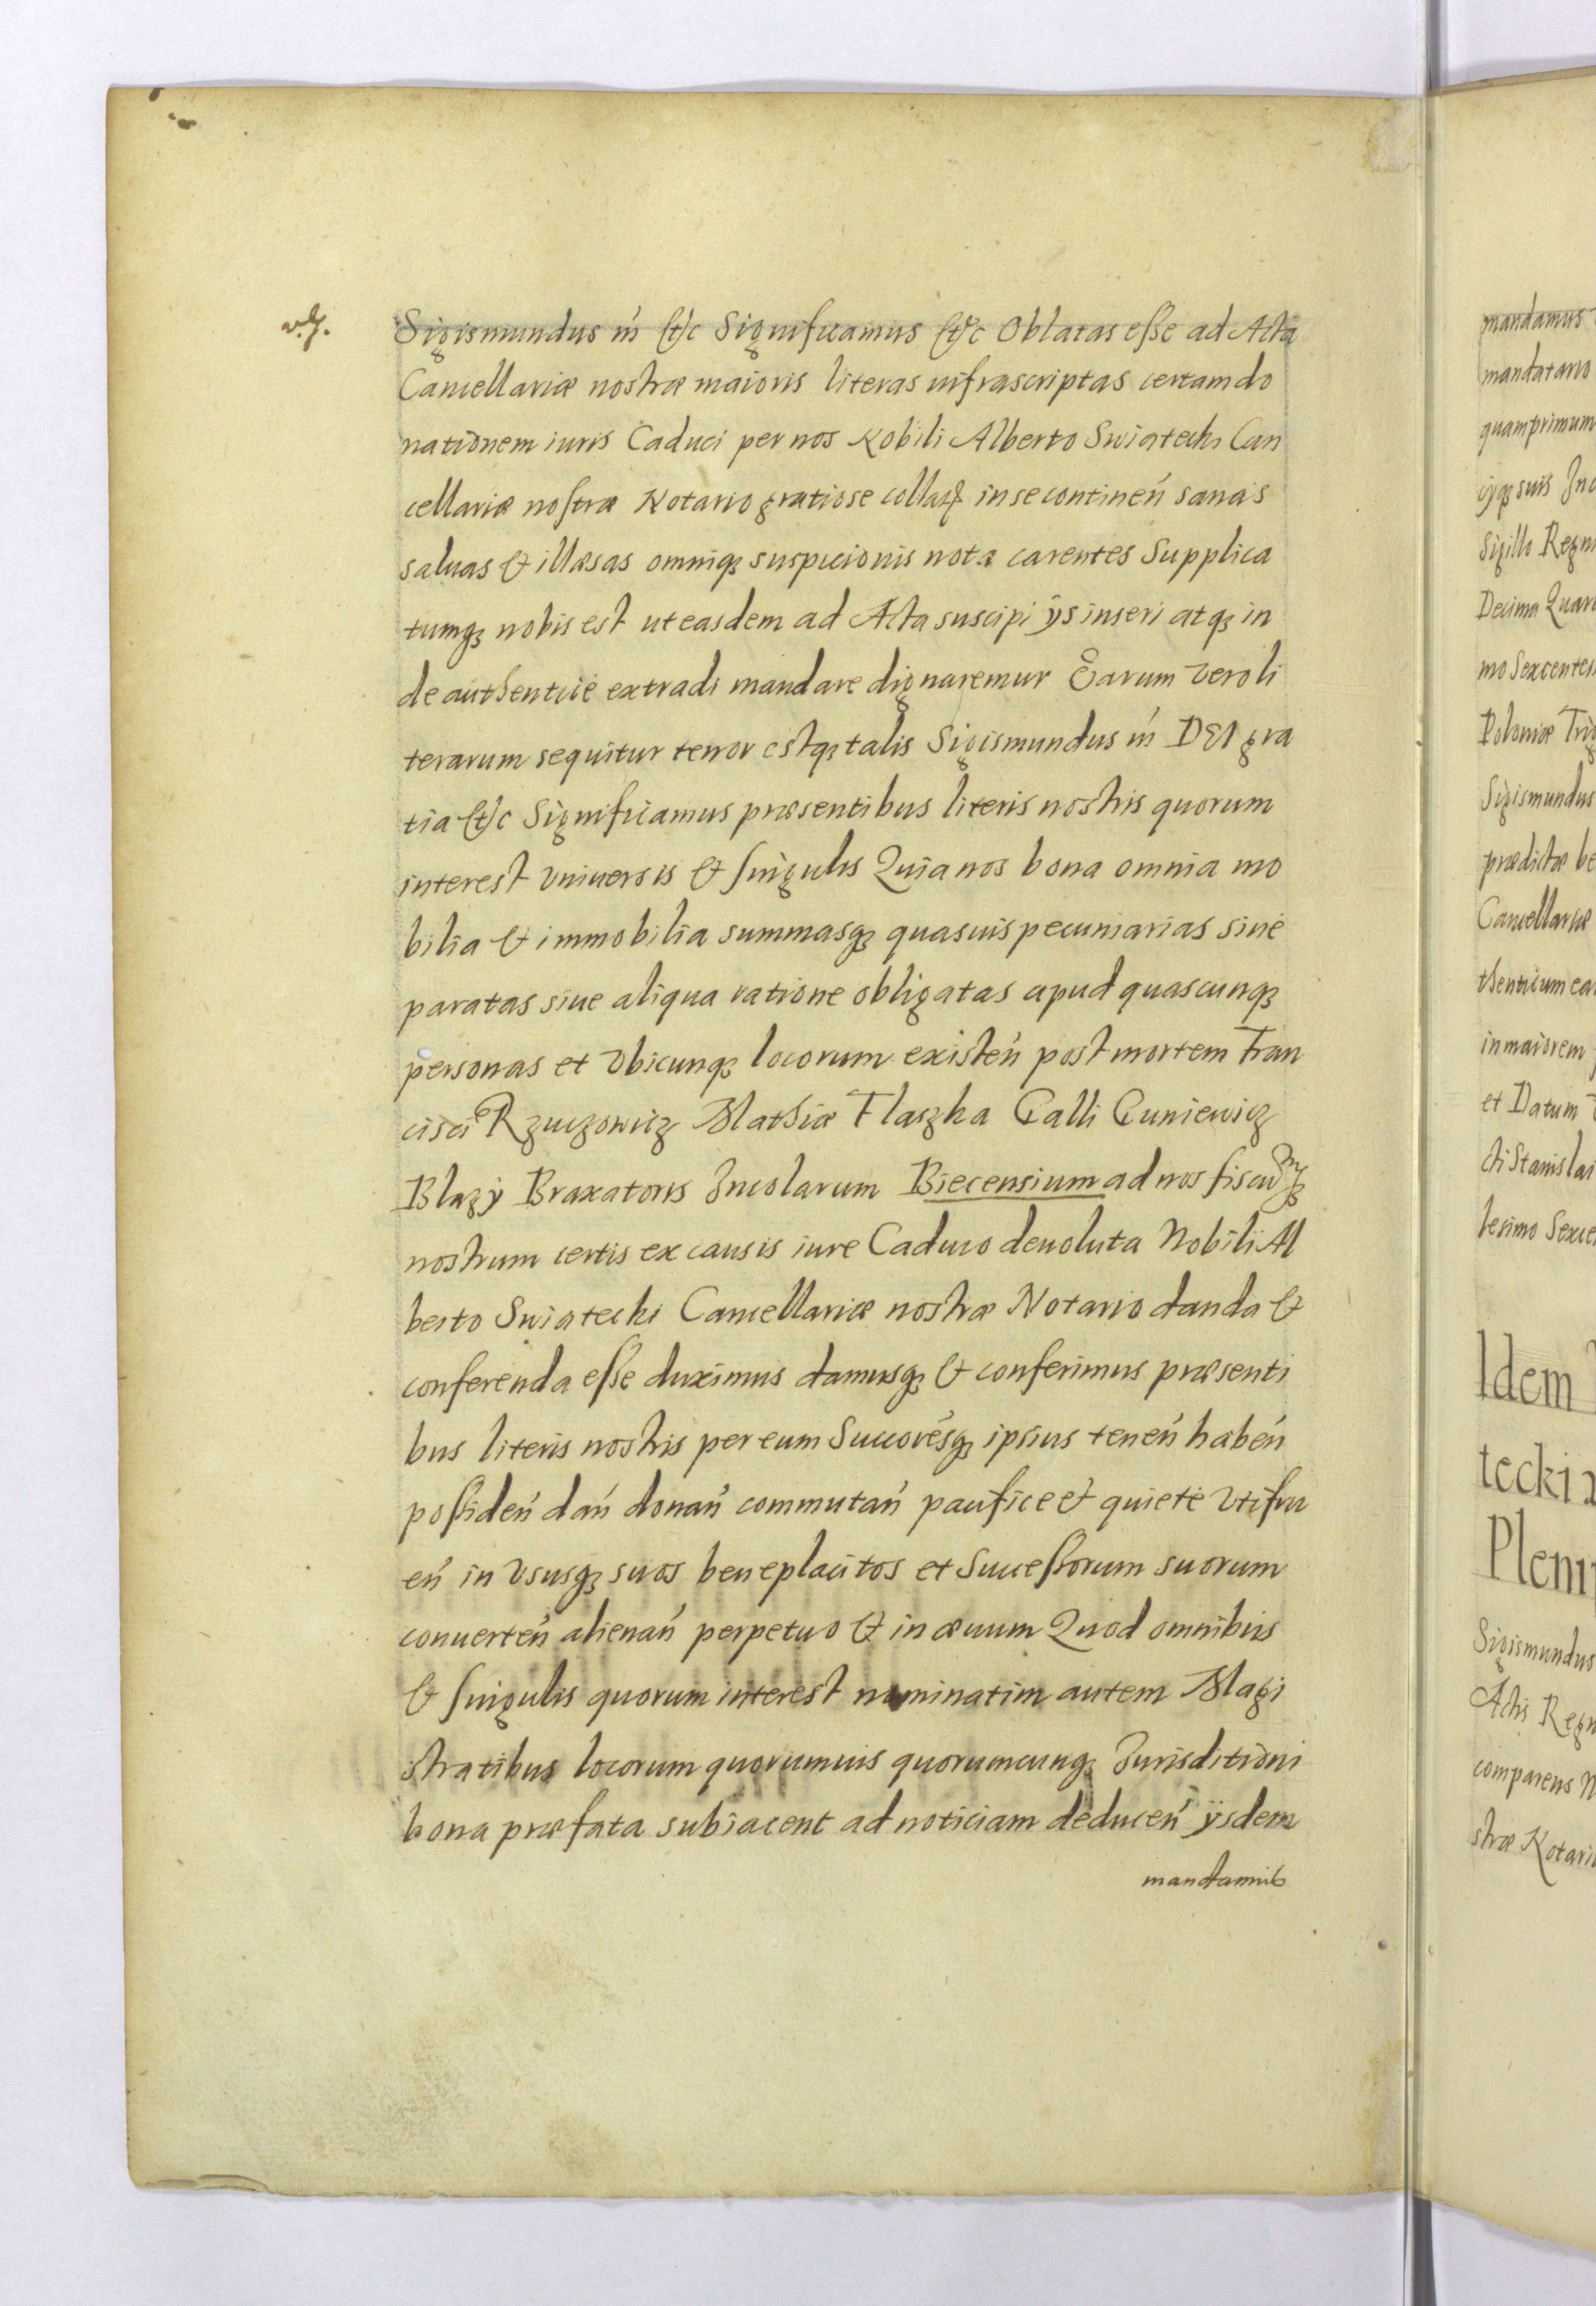 Sigismundus ııı &c Significamus &c Oblatas esse ad Acta
Cancellariæ nostræ maioris literas infrascriptas certam do
nationem iuris Caduci per nos Nobili Alberto Swiatecki Can
cellariæ nostræ Notario gratiose collatą in se continen̄ sanas
saluas & illæsas omniq; suspicionis nota carentes Supplica
tumq; nobis est ut easdem ad Acta suscipi ijs inseri atq; in
de authentice extradi mandare dignaremur Earum vero li
terarum sequitur tenor estq; talis Sigismundus ııı DEI gra
tia &c Significamus præsentibus literis nostris quorum
interest vniuersis & singulis Quia nos bona omnia mo
bilia & immobilia summasq; quasuis pecuniarias siue
paratas siue aliqua ratione obligatas apud quascunq;
personas et vbicunq; locorum existen̄ post mortem Fran
cisci Rzuczowicz Mathiæ Flaszka Galli Guniewicz
Blazÿ Braxatoris Incolarum Biecensium ad nos fiscumq;
nostrum certis ex causis iure Caduco deuoluta Nobili Al
berto Swiatecki Cancellariæ nostræ Notario danda &
conferenda esse duximus damusq; & conferimus præsenti
bus literis nostris per eum Succoresq; ipsius tenen̄ haben̄
possiden̄ dan̄ donan̄ commutan̄ pacifice & quiete vtifru
en̄ in vsusq; suos beneplacitos et Successorum suorum
conuerten̄ alienan̄ perpetuo & in æuum Quod omnibus
& singulis quorum interest nominatim autem Magi
stratibus locorum quorumuis quorumcunq; Iurisditioni
bona præfata subiacent ad noticiam deducen̄ ijsdem
mandamus
mandamus
mandatario
quamprimum
ijq; suis Inc
Sigillo Regni
Decima Quar
mo Sexcentes
Poloniæ Trig
Sigismundus
prædictæ be
Cancellariæ
thenticum ea
in maiorem
et Datum
cti Stanislai
lesimo Sexce
Idem
tecki
Pleni
Sigismundus
Actis Regn
comparens N
stræ Notari